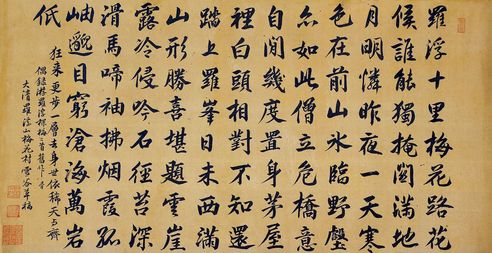 羅浮十里梅花路花
候誰能獨掩關滿地
月明憐昨夜一天寒
色在前山水臨野壑
亦如此僧立危橋意
自閒幾度置身茅屋
裡白頭相對不知還
踏上羅峯日未西滿
山形勝喜堪題雲崖
露冷侵吟石徑苔深
滑馬啼袖拂烟霞孤
岫逈目窮滄海萬岩
低
狂来更步一層去身世依稀天与齊
偶録游羅浮探梅二首舊作
大清羅浮山梅花村雪